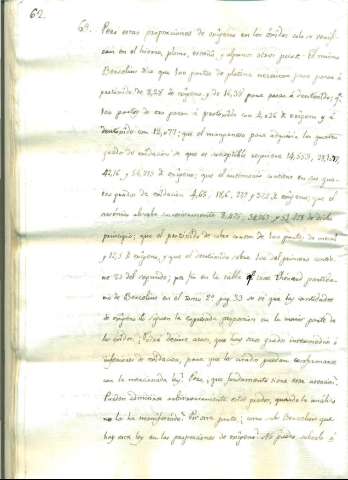 62.
63. Pero estas proporciones de oxígeno en los óxidos solo se verifican
en el hierro, plomo, estaño, y algunos otros pocos. El mismo
Berzelius dice que 100 partes de platina necesitan para pasar á
protóxido de 8,28 de oxígeno y de 16,38 para pasar á deutóxido; q.e
100 partes de oro pasan á protóxido con 4,026 de oxígeno y á
con 12,077; que el manganeso para adquirir los quatro
grados de oxidacion de que es susceptible requiere 14,533,
42,16 y 56,215 de oxígeno; que el antimonio contiene en sus quatro
grados de oxidacion 4,65, 18,6, y de oxígeno; que el
arsénico absorbe 8,475, y de dicho
principio; que el protóxido de cobre consta de 100 partes de metal
y 12,5 de oxígeno, y que el deutóxido sobre 100 del primero contiene
25 del segundo; por fin en la tabla
de Berzelius en el tomo 2º pag. 33 se ve que las cantidades
de oxígeno no siguen la proporcion en la mayor parte de
los óxidos. ¿Podrá decirse acaso, que hay otros grados intermedios é
inferiores de oxidacion, para que los citados puedan conformarse
con la mencionada ley? Pero, ¿que fundamento tiene esta asercion?
¿Pueden admitirse arbitrariamente estos grados, quando la análisis
no los ha manifestado? Por otra parte, ¿como sabe Berzelius que
hay esta ley en las proporciones de oxígeno? No puede saberlo á